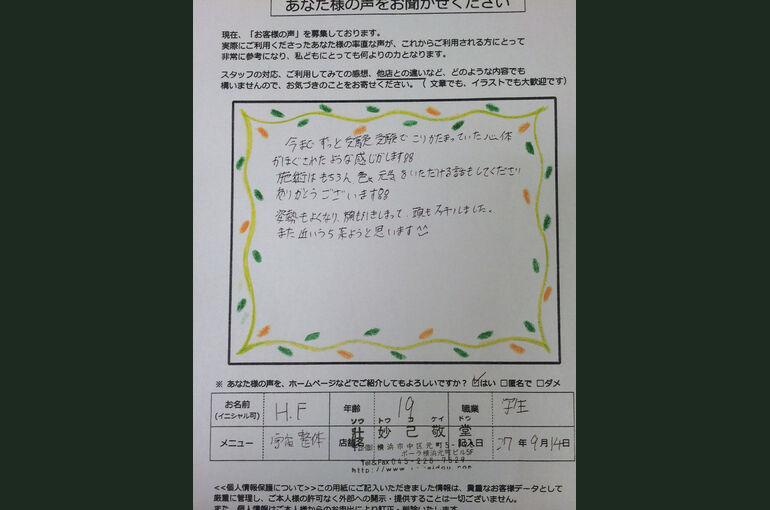 あなた様の声をお聞かせください
現在、「お客様の声」を募集しております。
実際にご利用くださったあなた様の率直な声が、これからご利用される方にとって
非常に参考になり、私どもにとっても何よりの力となります。
スタッフの対応、ご利用してみての感想、他店との違いなど、どのような内容でも
構いませんので、お気づきのことをお寄せください。（文章でも、イラストでも大歓迎です）
今まで ずっと受験 受験で こりかたまっていた心、体
がほぐされたような感じがします
施術はもちろん 色々 元気をいただける話もしてくださり
ありがとうございます
姿勢もよくなり、胸もひきしまって、頭もスッキリしました。
また近いうち 来ようと思います
※ あなた様の声を、ホームページなどでご紹介してもよろしいですか？ ☑はい □匿名で □ダメ
お名前 H.F 年齢 19 職業 学生
(イニシャル可)
ソウ トウ コ ケイ ドウ
壮 妙 己 敬 堂
メニュー 宇宙整体 店舗名 記入日 27年9月14日
横浜市中区元町5-
ポーラ横浜元町ビル5F
Tel&Fax 045-228-7529
http://www.
<<個人情報保護について>>この用紙にご記入いただきました情報は、貴重なお客様データとして
厳重に管理し、ご本人様の許可なく外部への開示・提供することは一切ございません。
また、個人情報はご本人様からのお申出により訂正・削除いたします。